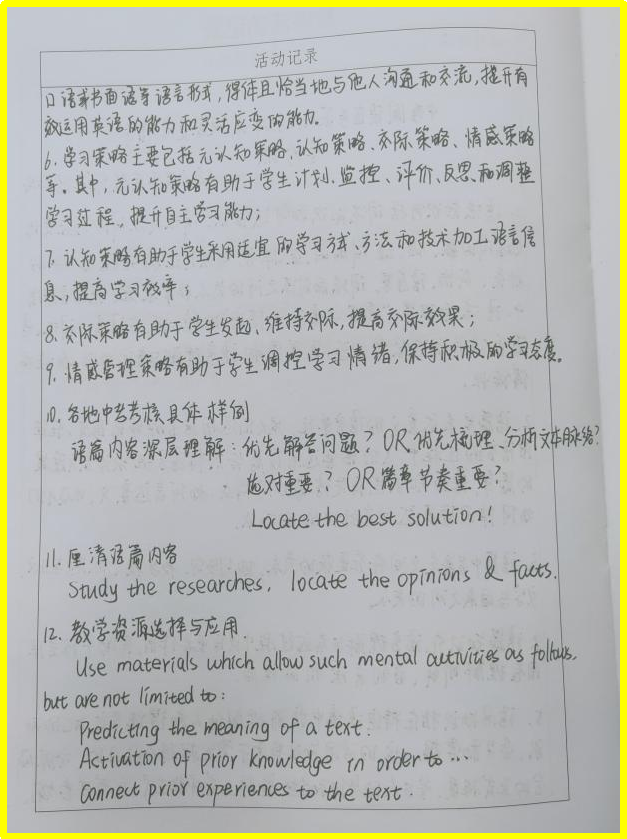 活动记录
口语或书面语等语言形式,得体且恰当地与他人沟通和交流,提升有
效运用英语的能力和灵活应变的能力。
6. 学习策略主要包括元认知策略、认知策略、交际策略、情感策略
等。其中,元认知策略有助于学生计划、监控、评价、反思和调整
学习过程,提升自主学习能力;
7. 认知策略有助于学生采用适宜的学习方式、方法和技术加工语言信
息,提高学习效率;
8. 交际策略有助于学生发起、维持交际,提高交际效果;
9. 情感管理策略有助于学生调控学习情绪,保持积极的学习态度。
10. 各地中考考核具体样例
语篇内容深层理解:优先解答问题? OR 优先梳理、分析文本脉络?
做对重要? OR 篇章节奏重要?
Locate the best solution!
11. 厘清语篇内容
Study the researches, locate the opinions & facts.
12. 教学资源选择与应用.
Use materials which allow such mental activities as follows,
but are not limited to:
Predicting the meaning of a text.
Activation of prior knowledge in order to ...
Connect prior experiences to the text.